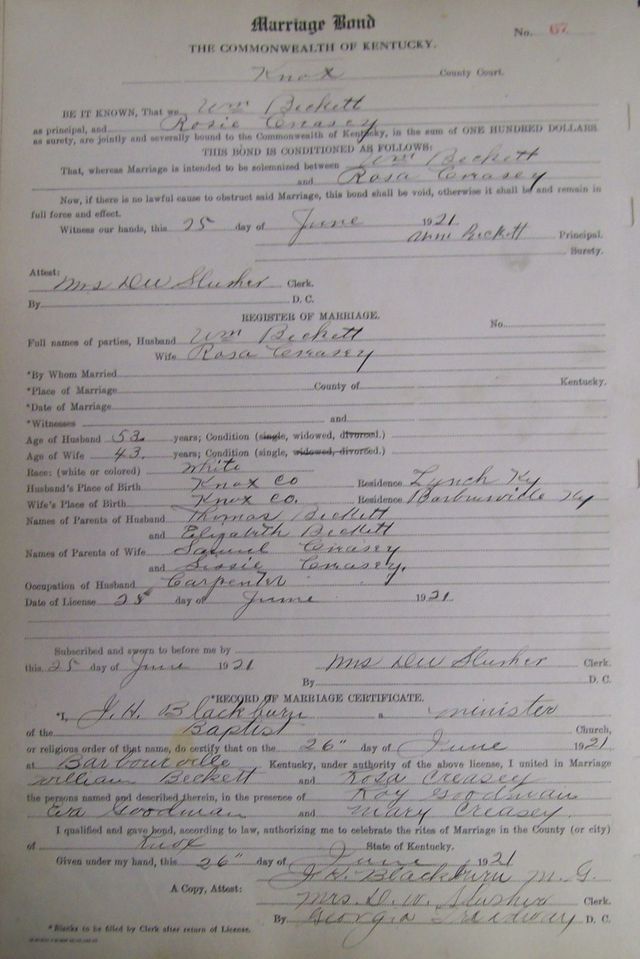 Marriage Bond
No. 67
THE COMMONWEALTH OF KENTUCKY.
Knox County Court.
BE IT KNOWN, That we Wm Beckett
as principal, and Rosie Creasey
as surety, are jointly and severally bound to the Commonwealth of Kentucky, in the sum of ONE HUNDRED DOLLARS
THIS BOND IS CONDITIONED AS FOLLOWS:
That, whereas Marriage is intended to be solemnized between Wm Beckett
and Rosa Creasey
Now, if there is no lawful cause to obstruct said Marriage, this bond shall be void, otherwise it shall be and remain in
full force and effect.
Witness our hands, this 25 day of June 1921
Wm Beckett Principal.
Surety.
Attest:
Mrs DW Slusher Clerk.
By D. C.
REGISTER OF MARRIAGE.
No.
Full names of parties, Husband Wm Beckett
Wife Rosa Creasey
*By Whom Married
*Place of Marriage County of Kentucky.
*Date of Marriage
*Witnesses and
Age of Husband 53 years; Condition (single, widowed, divorced.)
Age of Wife 43. years; Condition (single, widowed, divorced.)
Race: (white or colored) White
Husband's Place of Birth Knox Co Residence Lynch Ky
Wife's Place of Birth Knox Co. Residence Barbourville Ky
Names of Parents of Husband Thomas Beckett
and Elizabeth Beckett
Names of Parents of Wife Samuel Creasey
and Creasey.
Occupation of Husband Carpenter
Date of License 25 day of June 1921
Subscribed and sworn to before me by
this 25 day of June 1921 Mrs DW Slusher Clerk.
By D. C.
*RECORD OF MARRIAGE CERTIFICATE.
*I, J. H. Blackburn a minister
of the Baptist Church,
or religious order of that name, do certify that on the 26" day of June 1921
at Barbourville Kentucky, under authority of the above license, I united in Marriage
William Beckett and Rosa Creasey
the persons named and described therein, in the presence of Roy Goodman
Eva Goodman and Mary Creasey.
I qualified and gave bond, according to law, authorizing me to celebrate the rites of Marriage in the County (or city)
of Knox State of Kentucky.
Given under my hand, this 26" day of June 1921
J. H. Blackburn M. G.
A Copy, Attest: Mrs. D. W. Slusher Clerk.
By Georgia Treadway D. C.
*Blanks to be filled by Clerk after return of License.